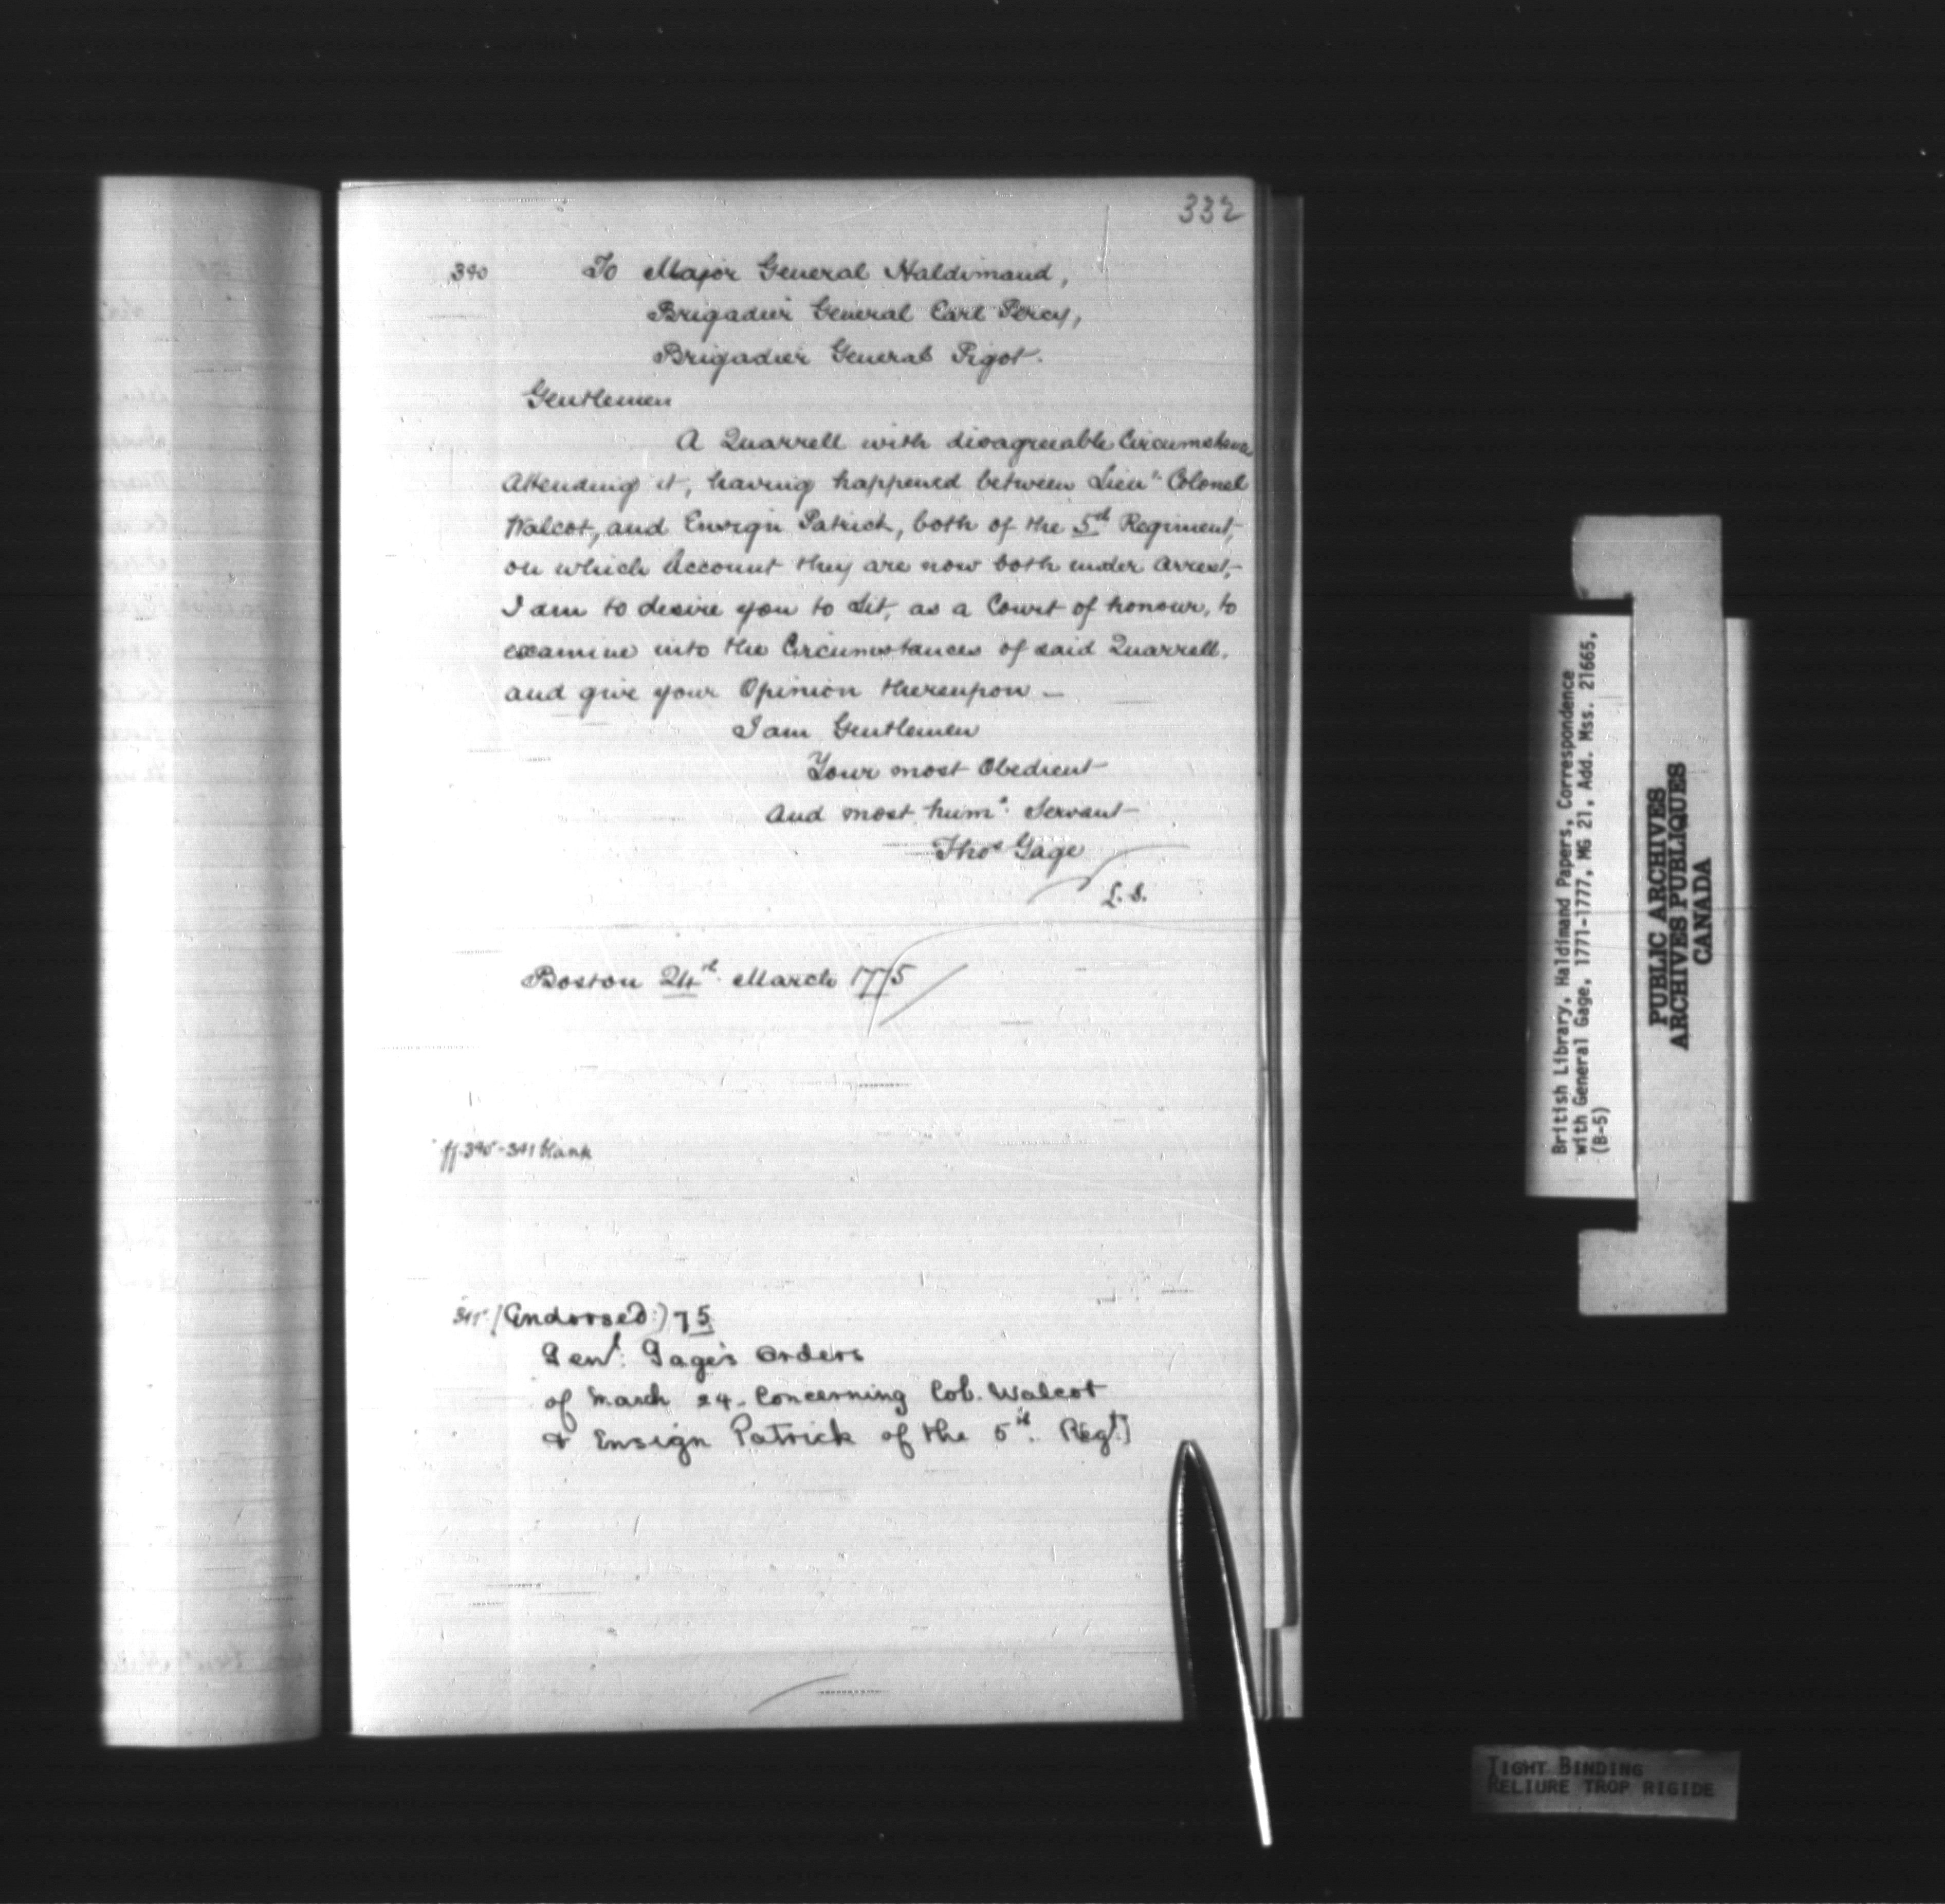 332
340 To Major General Haldimand,
Brigadier General Earl Percy,
Brigadier General Pigot.
Gentlemen
A Quarrell with disagreeable Circumstances
Attending it, having happened between Lieu.t Colonel
Walcot, and Ensign Patrick, both of the 5th Regiment,
on which Account they are now both under Arrest,
I am to desire you to Sit, as a Court of honour, to
examine into the Circumstances of said Quarrell,
and give your Opinion thereupon —
I am Gentlemen
Your most Obedient
And most hum.e Servant
Thos Gage
L. S.
Boston 24th March 1775
ff. 340v-341 blank
341v [Endorsed:) 75
Genl: Gage's Orders
of March 24. Concerning Col. Walcot
& Ensign Patrick of the 5th. Regt.]
British Library, Haldimand Papers, Correspondence
with General Gage, 1771-1777, MG 21, Add. Mss. 21665,
(B-5)
PUBLIC ARCHIVES
ARCHIVES PUBLIQUES
CANADA
TIGHT BINDING
RELIURE TROP RIGIDE